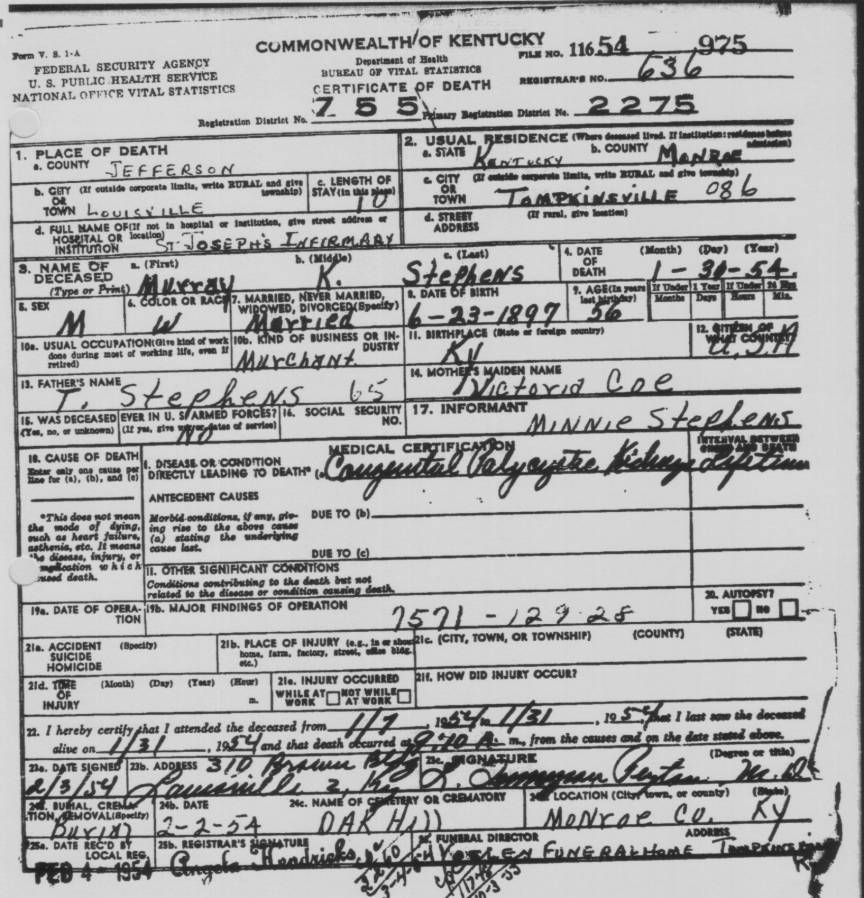 COMMONWEALTH OF KENTUCKY
Form V. S. 1-A
FILE NO. 116 54 975
FEDERAL SECURITY AGENCY
U. S. PUBLIC HEALTH SERVICE
NATIONAL OFFICE VITAL STATISTICS
Department of Health
BUREAU OF VITAL STATISTICS
CERTIFICATE OF DEATH
REGISTRAR'S NO. 636
Registration District No. 755 Primary Registration District No. 2275
1. PLACE OF DEATH
a. COUNTY JEFFERSON
2. USUAL RESIDENCE (Where deceased lived. If institution: residence before admission)
a. STATE KENTUCKY b. COUNTY MONROE
b. CITY (If outside corporate limits, write RURAL and give township)
OR
TOWN LOUISVILLE
c. LENGTH OF STAY (in this place)
10
c. CITY (If outside corporate limits, write RURAL and give township)
OR
TOWN TOMPKINSVILLE 086
d. FULL NAME OF (If not in hospital or institution, give street address or location)
HOSPITAL OR
INSTITUTION ST JOSEPH'S INFIRMARY
d. STREET ADDRESS (If rural, give location)
3. NAME OF DECEASED
(Type or Print)
a. (First) Murray
b. (Middle) K.
c. (Last) Stephens
4. DATE OF DEATH (Month) (Day) (Year)
54.
5. SEX
M
6. COLOR OR RACE
W
7. MARRIED, NEVER MARRIED, WIDOWED, DIVORCED (Specify)
Married
8. DATE OF BIRTH
6-23-1897
9. AGE (In years last birthday)
56
If Under 1 Year
Months Days
If Under 24 Hrs.
Hours Min.
10a. USUAL OCCUPATION (Give kind of work done during most of working life, even if retired)
10b. KIND OF BUSINESS OR INDUSTRY
Murchant.
11. BIRTHPLACE (State or foreign country)
Ky
12. CITIZEN OF WHAT COUNTRY?
U.S.A
13. FATHER'S NAME
T. Stephens 65
14. MOTHER'S MAIDEN NAME
Victoria Coe
15. WAS DECEASED EVER IN U. S. ARMED FORCES?
(Yes, no, or unknown) (If yes, give war or dates of service)
No
16. SOCIAL SECURITY NO.
17. INFORMANT
MINNIE Stephens
18. CAUSE OF DEATH
Enter only one cause per line for (a), (b), and (c)
MEDICAL CERTIFICATION
INTERVAL BETWEEN ONSET AND DEATH
I. DISEASE OR CONDITION
DIRECTLY LEADING TO DEATH* (a) Congenital Polycystic Kidney Lifetime
*This does not mean the mode of dying, such as heart failure, asthenia, etc. It means the disease, injury, or complication which caused death.
ANTECEDENT CAUSES
Morbid conditions, if any, giving rise to the above cause (a) stating the underlying cause last.
DUE TO (b)
DUE TO (c)
II. OTHER SIGNIFICANT CONDITIONS
Conditions contributing to the death but not related to the disease or condition causing death.
19a. DATE OF OPERATION
19b. MAJOR FINDINGS OF OPERATION
7571-129.28
20. AUTOPSY?
YES NO
21a. ACCIDENT (Specify)
SUICIDE
HOMICIDE
21b. PLACE OF INJURY (e.g., in or about home, farm, factory, street, office bldg. etc.)
21c. (CITY, TOWN, OR TOWNSHIP) (COUNTY) (STATE)
21d. TIME OF INJURY (Month) (Day) (Year) (Hour) m.
21e. INJURY OCCURRED
WHILE AT WORK NOT WHILE AT WORK
21f. HOW DID INJURY OCCUR?
22. I hereby certify that I attended the deceased from 1/7, 1954 to 1/31, 1954, that I last saw the deceased
alive on 1/31, 1954 and that death occurred at m., from the causes and on the date stated above.
23a. DATE SIGNED
2/3/54
23b. ADDRESS 310 Brown Bldg
Louisville 2, Ky
23c. SIGNATURE (Degree or title)
M.D.
24a. BURIAL, CREMATION, REMOVAL (Specify)
Burial
24b. DATE
2-2-54
24c. NAME OF CEMETERY OR CREMATORY
OAK Hill
24d. LOCATION (City, town, or county) (State)
MONROE CO. KY
25a. DATE REC'D BY LOCAL REG.
FEB 4 - 1954
25b. REGISTRAR'S SIGNATURE
Angela Hendricks
FUNERAL DIRECTOR ADDRESS
FUNERAL HOME